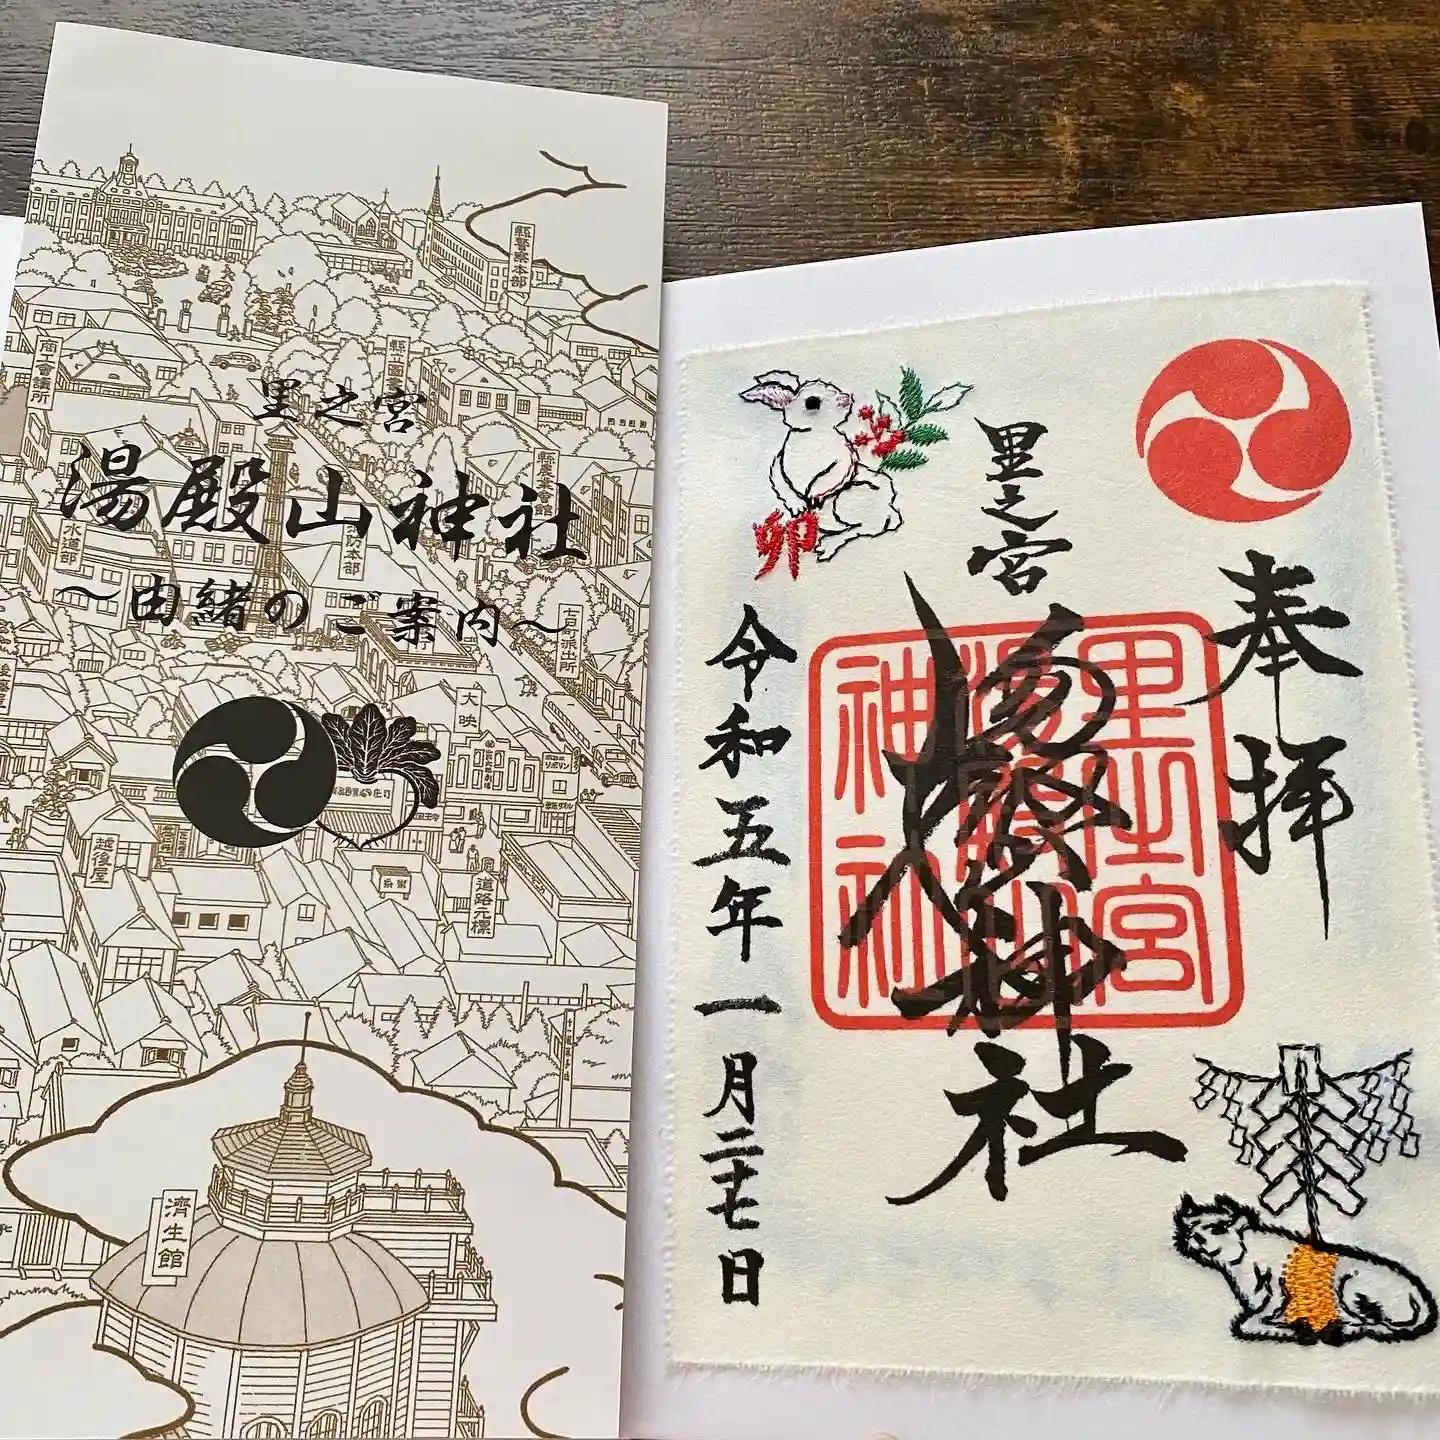 縣警察本部
商工會議所
里之宮
湯殿山神社
~由緒のご案内~
縣農業會館
水道部
七日町派出所
大映
越後屋
道路元標
濟生館
奉拝
里之宮
湯殿山神社
里之宮
湯殿山
神社
卯
令和五年一月二十七日